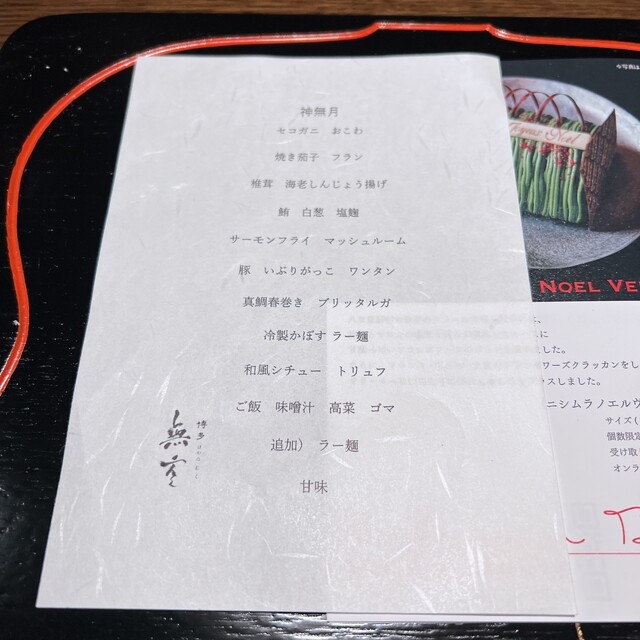 神無月
セコガニ　おこわ
焼き茄子　フラン
椎茸　海老しんじょう揚げ
鮪　白葱　塩麹
サーモンフライ　マッシュルーム
豚　いぶりがっこ　ワンタン
真鯛春巻き　ブリッタルガ
冷製かぼす ラー麺
和風シチュー　トリュフ
ご飯　味噌汁　高菜　ゴマ
追加）　ラー麺
甘味
博多
無室
※写真は
Joyeux Noël
NOEL VE
に
ました。
ワーズクラッカンをし
スしました。
ニシムラノエルヴ
サイズ(
個数限定
受け取
オンラ